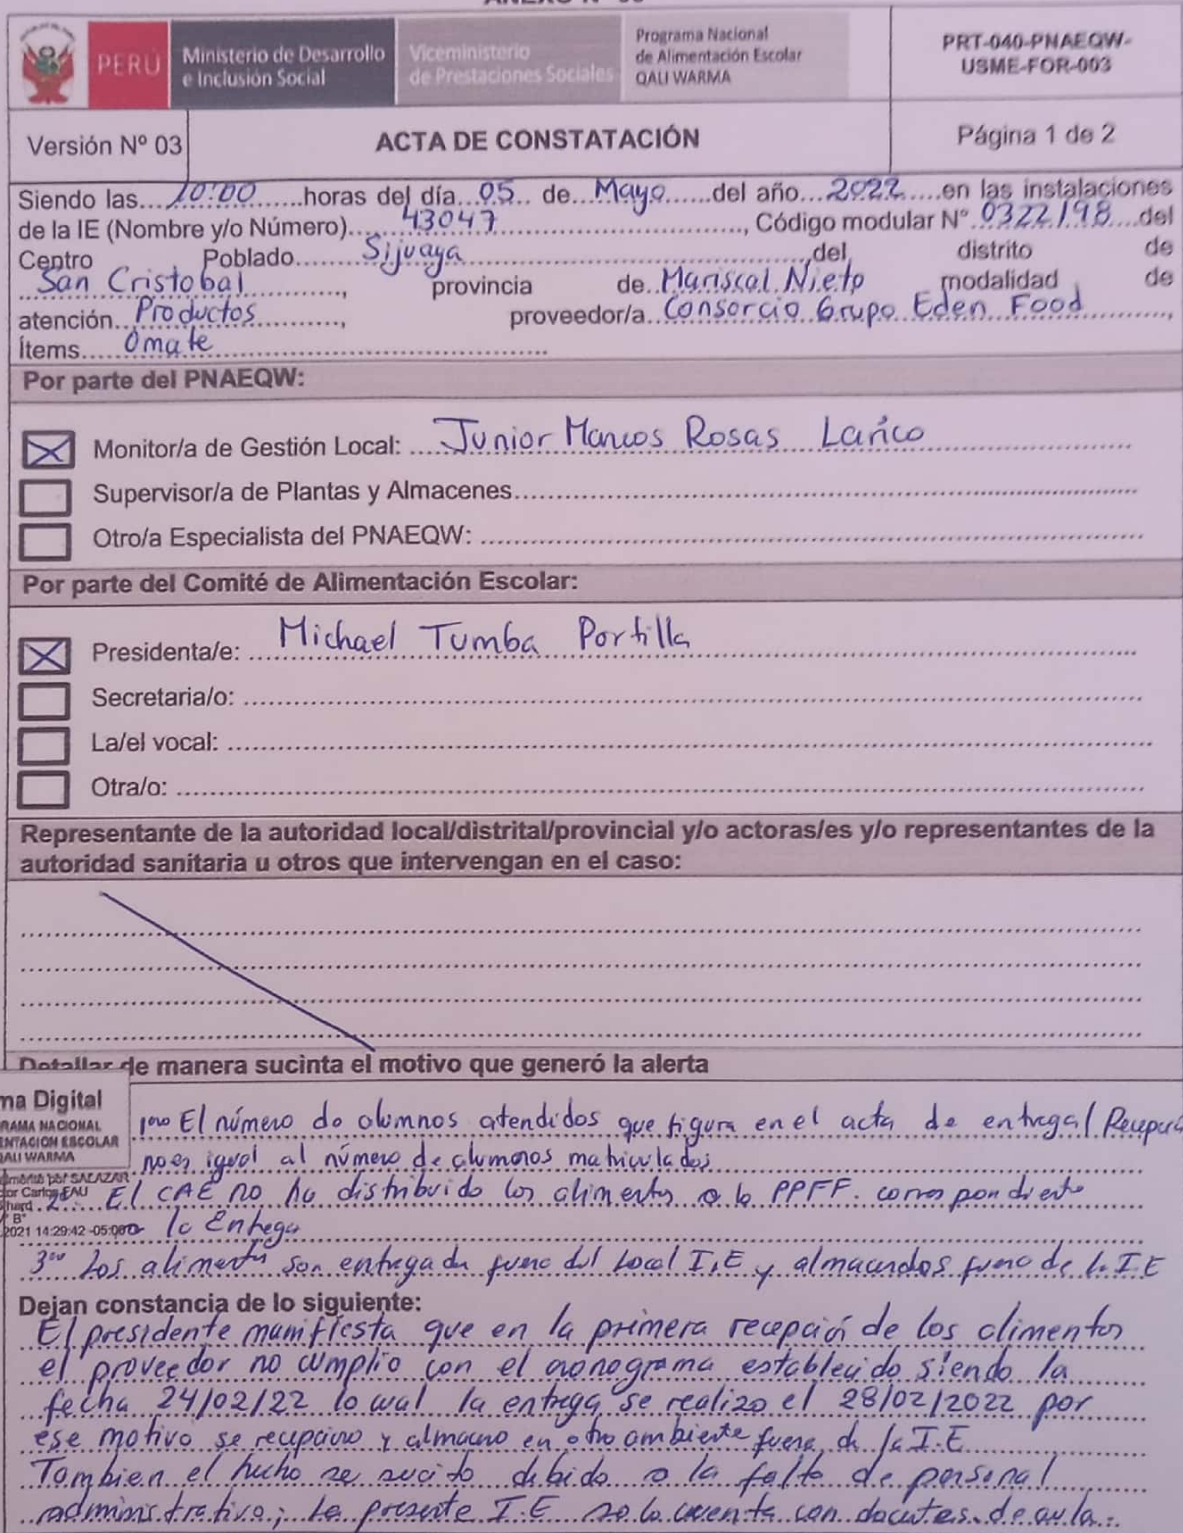 PERÚ
Ministerio de Desarrollo
e Inclusión Social
Viceministerio
de Prestaciones Sociales
Programa Nacional
de Alimentación Escolar
QALI WARMA
PRT-040-PNAEQW-
USME-FOR-003
Versión Nº 03
ACTA DE CONSTATACIÓN
Página 1 de 2
Siendo las...10:00......horas del día..05.. de...Mayo......del año...2022....en las instalaciones
de la IE (Nombre y/o Número)......43047......, Código modular Nº 0322198...del
Centro Poblado......Sijuaya......,del distrito de
San Cristobal......, provincia de..Mariscal Nieto modalidad de
atención..Productos......, proveedor/a..Consorcio Grupo Eden Food......,
Ítems....Omate......
Por parte del PNAEQW:
Monitor/a de Gestión Local: ....Junior Marcos Rosas Larico
Supervisor/a de Plantas y Almacenes......
Otro/a Especialista del PNAEQW: ......
Por parte del Comité de Alimentación Escolar:
Presidenta/e: ...Michael Tumba Portilla
Secretaria/o: ......
La/el vocal: ......
Otra/o: ......
Representante de la autoridad local/distrital/provincial y/o actoras/es y/o representantes de la
autoridad sanitaria u otros que intervengan en el caso:
Detallar de manera sucinta el motivo que generó la alerta
ma Digital
RAMA NACIONAL
ENTACION ESCOLAR
QALI WARMA
por SALAZAR
or Carlos FAU
hard
B"
2021 14:29:42 -05:00
1ero El número de alumnos atendidos que figura en el acta de entrega/
no es igual al número de alumnos matriculados
El CAE no ha distribuido los alimentos a la PPFF. correspondiente
a la Entrega
3ro Los alimentos son entregados fuera del Local I.E y almacenados fuera de la I.E
Dejan constancia de lo siguiente:
El presidente manifiesta que en la primera recepción de los alimentos
el proveedor no cumplio con el cronograma establecido siendo la
fecha 24/02/22 lo cual la entrega se realizo el 28/02/2022 por
ese motivo se y almaceno en otro ambiente fuera de la I.E
Tambien el hecho se sucito debido a la falta de personal
administrativo; la presente I.E solo cuenta con docentes de aula.